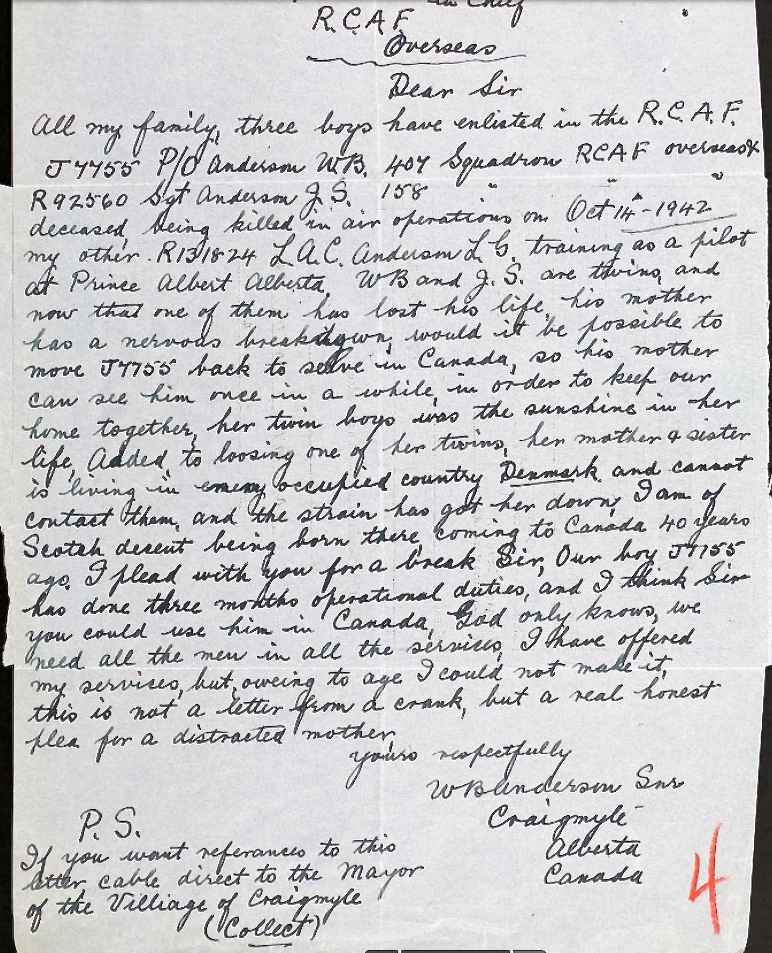 in Chief
R.C.A.F.
Overseas
Dear Sir
All my family, three boys have enlisted in the R.C.A.F.
J7755 P/O Anderson W.B. 407 Squadron RCAF overseas
R92560 Sgt Anderson J.S. 158 " " "
deceased, being killed in air operations on Oct 14th-1942
my other. R131824 L.A.C. Anderson L.G. training as a pilot
at Prince Albert Alberta, WB and J.S. are twins, and
now that one of them has lost his life, his mother
has a nervous breakdown, would it be possible to
move J7755 back to serve in Canada, so his mother
can see him once in a while, in order to keep our
home together, her twin boys was the sunshine in her
life, Added to loosing one of her twins, her mother & sister
is living in enemy occupied country Denmark and cannot
contact them, and the strain has got her down, I am of
Scotch decent being born there, coming to Canada 40 years
ago. I plead with you for a break Sir, Our boy J7755
has done three months operational duties, and I think Sir
you could use him in Canada, God only knows, we
need all the men in all the services, I have offered
my services, but, oweing to age I could not make it,
this is not a letter from a crank, but a real honest
plea for a distracted mother,
yours respectfully
WBAnderson Snr
Craigmyle
Alberta
Canada
P.S.
If you want referances to this
letter, cable direct to the Mayor
of the Villiage of Craigmyle
(Collect)
4